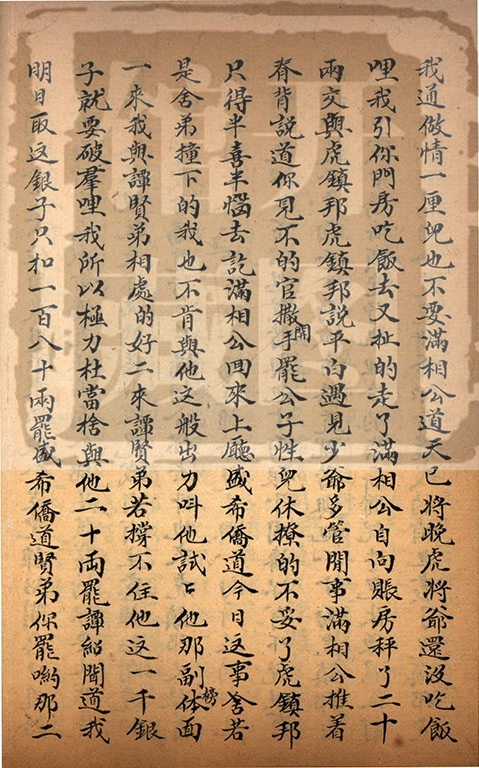 我通做情一厘兒也不要滿相公道天已將晚虎將爺還沒吃飯
哩我引你門房吃飯去又扯的走了滿相公自向賬房秤了二十
兩交與虎鎮邦虎鎮邦說平白遇見少爺多管閒事滿相公推着
脊背說道你見不的官撒開手罷公子性兒休撩的不妥了虎鎮邦
只得半喜半惱去訖滿相公回來上廳盛希僑道今日這事舍若
是舍弟撞下的我也不肯與他这般出力叫他試匕他那副体榜面
一來我與譚賢弟相處的好二來譚賢弟若撐不住他這一千銀
子就要破羣哩我所以極力杜當捨與他二十両罷譚紹聞道我
明日取这銀子只扣一百八十兩罷盛希僑道賢弟你罷喲那二